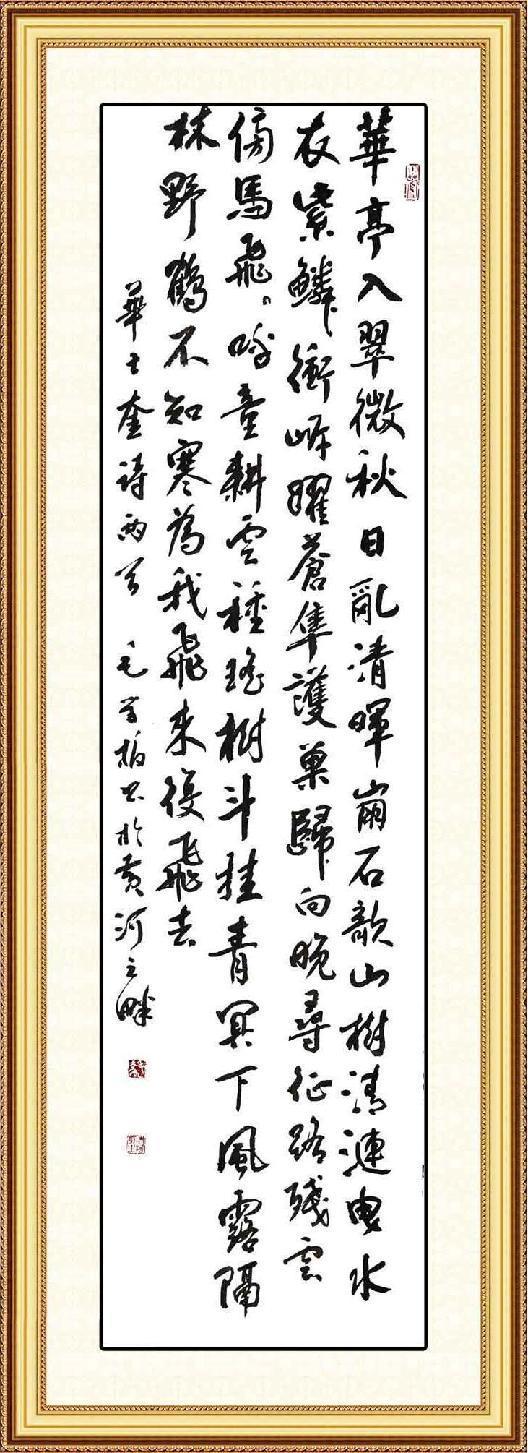 華亭入翠微秋日亂清暉崩石欹山樹清漣曳水
衣紫鱗衝岸躍蒼隼護巢歸向晚尋征路殘雲
傍馬飛呼童耕雲種瑤樹斗挂青冥下風露隔
林野鶴不知寒為我飛來復飛去
華士奎詩兩首 毛柏书於黄河之畔